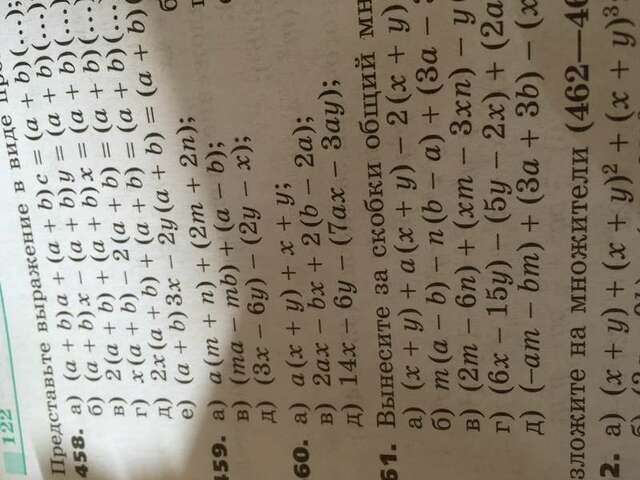 122
Представьте выражение в виде
458. а) (a + b)a + (a + b)c = (a + b)(...);
б) (a + b)x − (a + b)y = (a + b)(...);
в) 2(a + b) + (a + b)x = (a + b)(...
г) x(a + b) − 2(a + b) = (a + b)(...
д) 2x(a + b) + (a + b) = (a + b)(...
е) (a + b)3x − 2y(a + b) = (a + b)(
459. а) a(m + n) + (2m + 2n);
в) (ma − mb) + (a − b);
д) (3x − 6y) − (2y − x);
60. а) a(x + y) + x + y;
в) 2ax − bx + 2(b − 2a);
д) 14x − 6y − (7ax − 3ay);
61. Вынесите за скобки общий мн
а) (x + y) + a(x + y) − 2(x + y)
б) m(a − b) − n(b − a) + (3a −
в) (2m − 6n) + (xm − 3xn) − y
г) (6x − 15y) − (5y − 2x) + (2a
д) (−am − bm) + (3a + 3b) − (x
зложите на множители (462—46
2. а) (x + y) + (x + y)² + (x + y)³